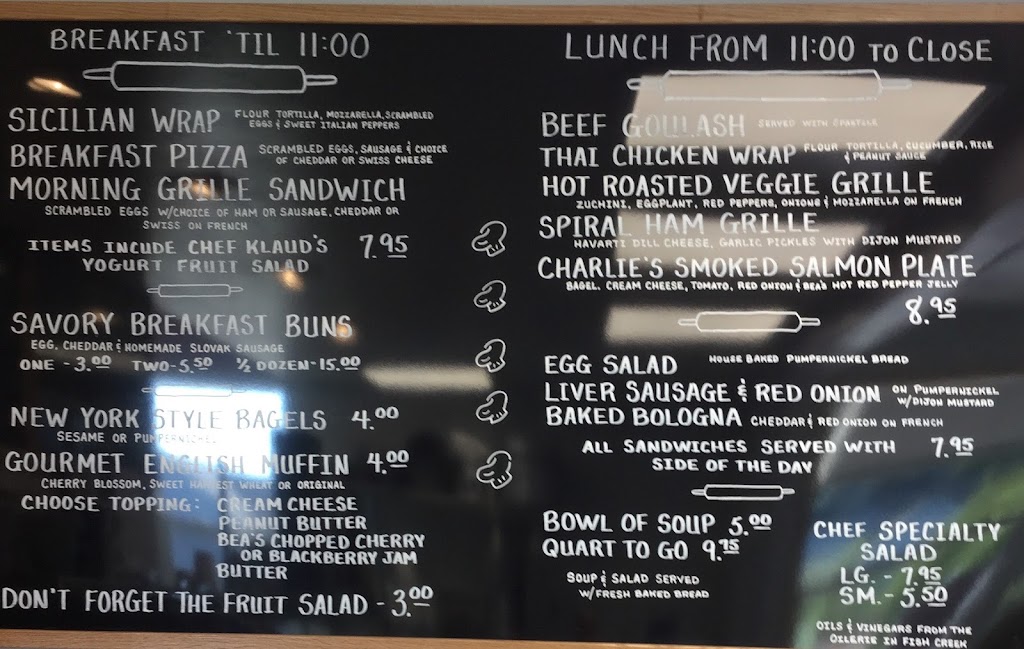 BREAKFAST 'TIL 11:00
SICILIAN WRAP FLOUR TORTILLA, MOZZARELLA, SCRAMBLED
EGGS & SWEET ITALIAN PEPPERS
BREAKFAST PIZZA SCRAMBLED EGGS, SAUSAGE & CHOICE
OF CHEDDAR OR SWISS CHEESE
MORNING GRILLE SANDWICH
SCRAMBLED EGGS W/CHOICE OF HAM OR SAUSAGE, CHEDDAR OR
SWISS ON FRENCH
ITEMS INCUDE CHEF KLAUD'S 7.95
YOGURT FRUIT SALAD
SAVORY BREAKFAST BUNS
EGG, CHEDDAR & HOMEMADE SLOVAK SAUSAGE
ONE - 3.00 TWO - 5.50 ½ DOZEN - 15.00
NEW YORK STYLE BAGELS 4.00
SESAME OR PUMPERNICKEL
GOURMET ENGLISH MUFFIN 4.00
CHERRY BLOSSOM, SWEET HARVEST WHEAT OR ORIGINAL
CHOOSE TOPPING: CREAM CHEESE
PEANUT BUTTER
BEA'S CHOPPED CHERRY
OR BLACKBERRY JAM
BUTTER
DON'T FORGET THE FRUIT SALAD - 3.00
LUNCH FROM 11:00 TO CLOSE
BEEF GOULASH SERVED WITH SPAETZLE
THAI CHICKEN WRAP FLOUR TORTILLA, CUCUMBER, RICE
& PEANUT SAUCE
HOT ROASTED VEGGIE GRILLE
ZUCHINI, EGGPLANT, RED PEPPERS, ONIONS & MOZZARELLA ON FRENCH
SPIRAL HAM GRILLE
HAVARTI DILL CHEESE, GARLIC PICKLES WITH DIJON MUSTARD
CHARLIE'S SMOKED SALMON PLATE
BAGEL, CREAM CHEESE, TOMATO, RED ONION & BEA'S HOT RED PEPPER JELLY
8.95
EGG SALAD HOUSE BAKED PUMPERNICKEL BREAD
LIVER SAUSAGE & RED ONION ON PUMPERNICKEL
W/DIJON MUSTARD
BAKED BOLOGNA CHEDDAR & RED ONION ON FRENCH
ALL SANDWICHES SERVED WITH 7.95
SIDE OF THE DAY
BOWL OF SOUP 5.00
QUART TO GO 9.75
SOUP & SALAD SERVED
W/FRESH BAKED BREAD
CHEF SPECIALTY
SALAD
LG. - 7.95
SM. - 5.50
OILS & VINEGARS FROM THE
OILERIE IN FISH CREEK